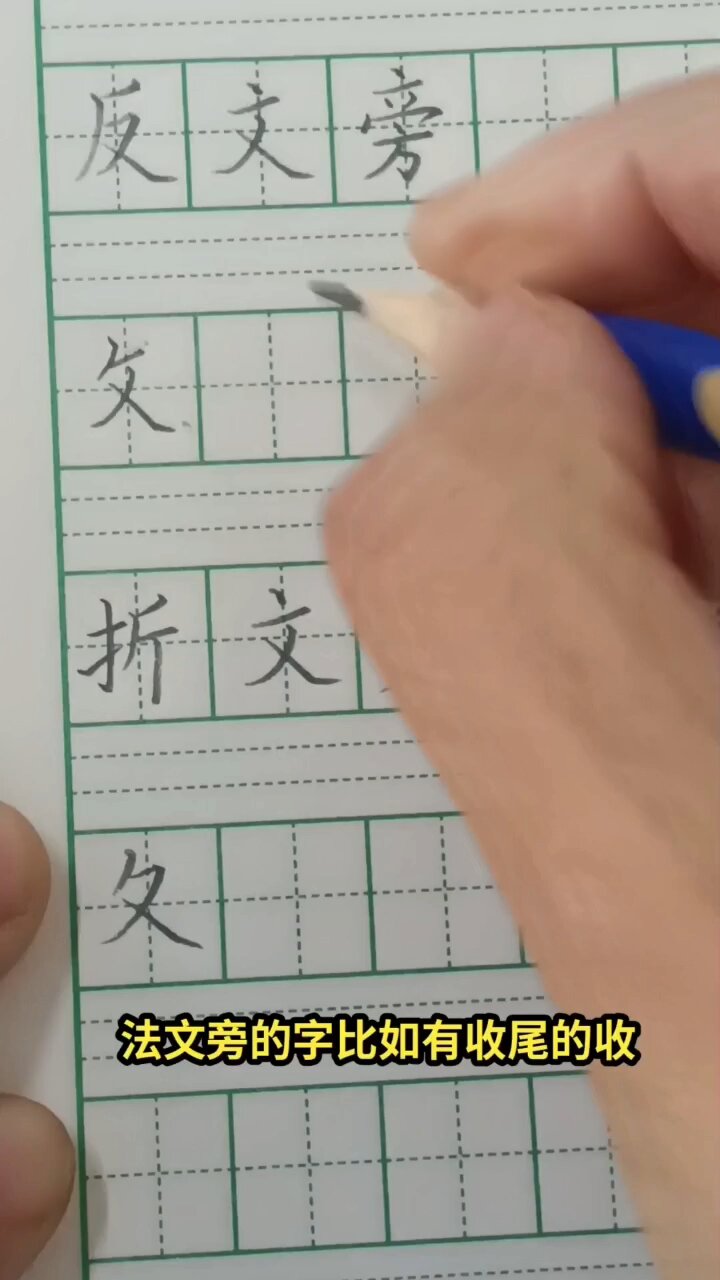 反文旁
攵
折文
夂
法文旁的字比如有收尾的收